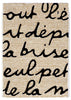 out l'ét
nt dépo
la brise
eul pet
de la m